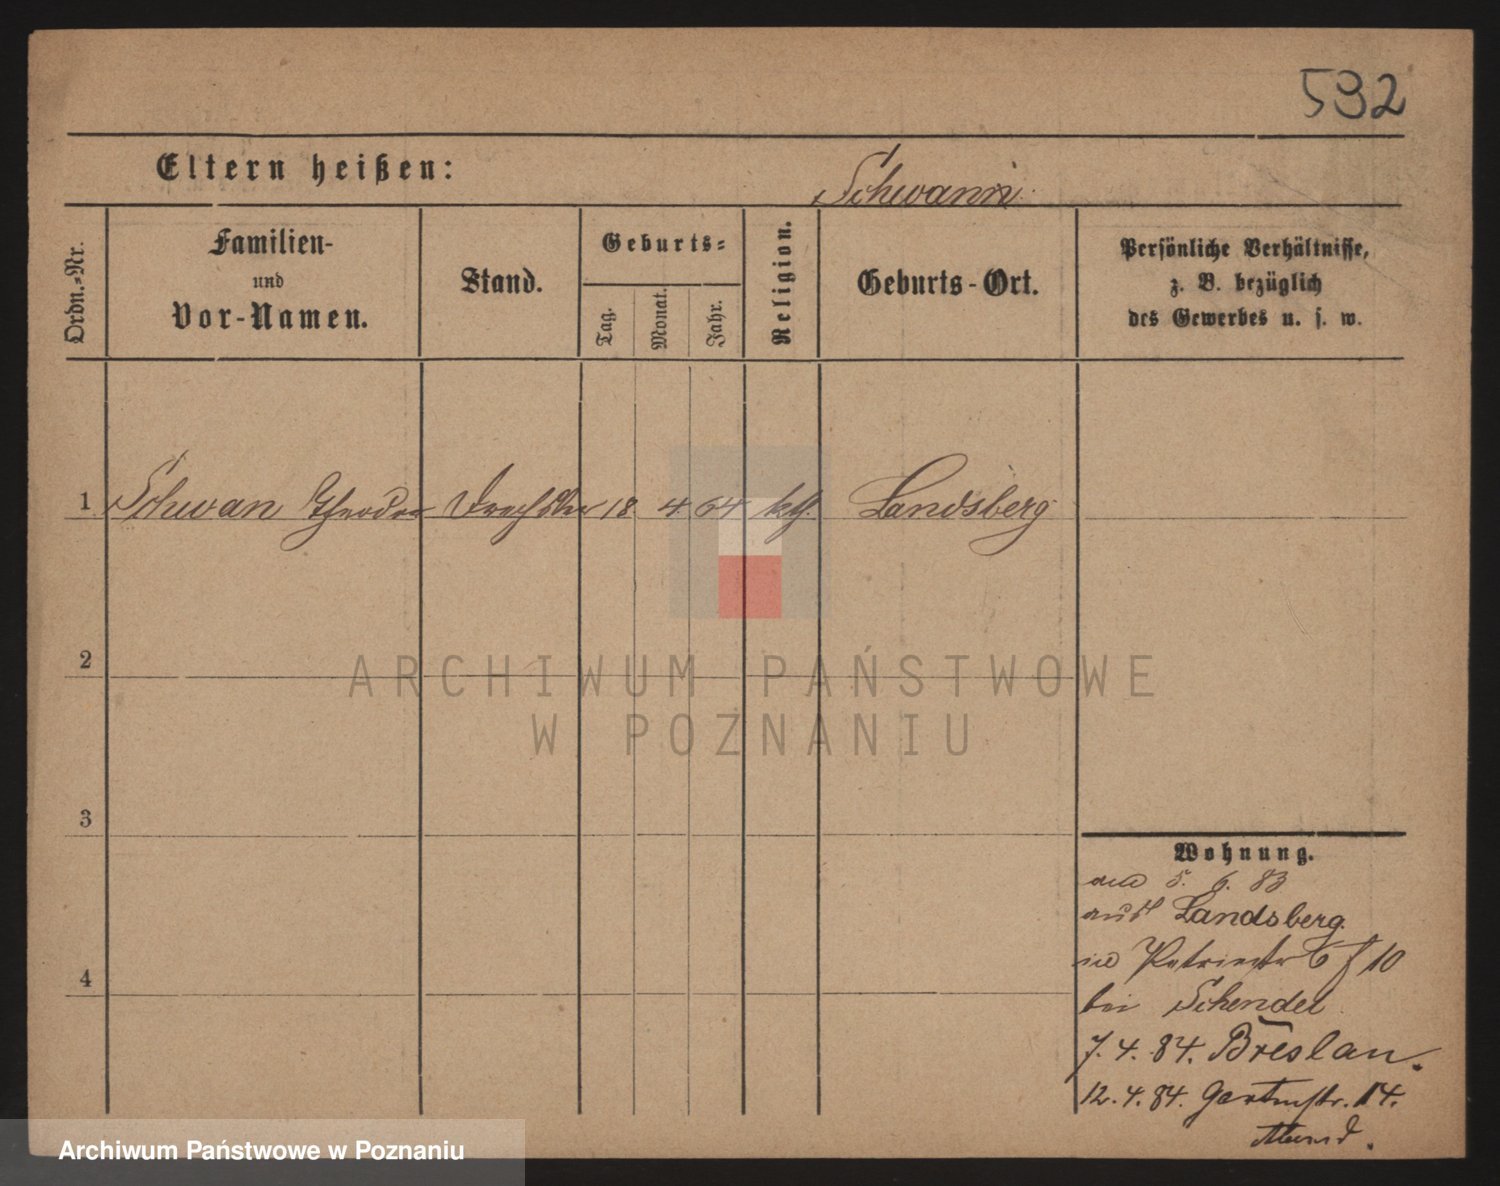 532
Eltern heißen:
Schwann
Ordn.-Nr.
Familien-
und
Vor-Namen.
Stand.
Geburts-
Tag.
Monat.
Jahr.
Religion.
Geburts-Ort.
Persönliche Verhältnisse,
z. B. bezüglich
des Gewerbes u. s. w.
1 Schwan Theodor Drechsler 18 4 64 kth. Landsberg
2
ARCHIWUM PAŃSTWOWE
W POZNANIU
3
Wohnung.
5. 6. 83
aus Landsberg.
Petristr 6 f 10
bei Schendel
4
7. 4. 84. Breslau.
12. 4. 84. Gartenstr. 14.
Archiwum Państwowe w Poznaniu